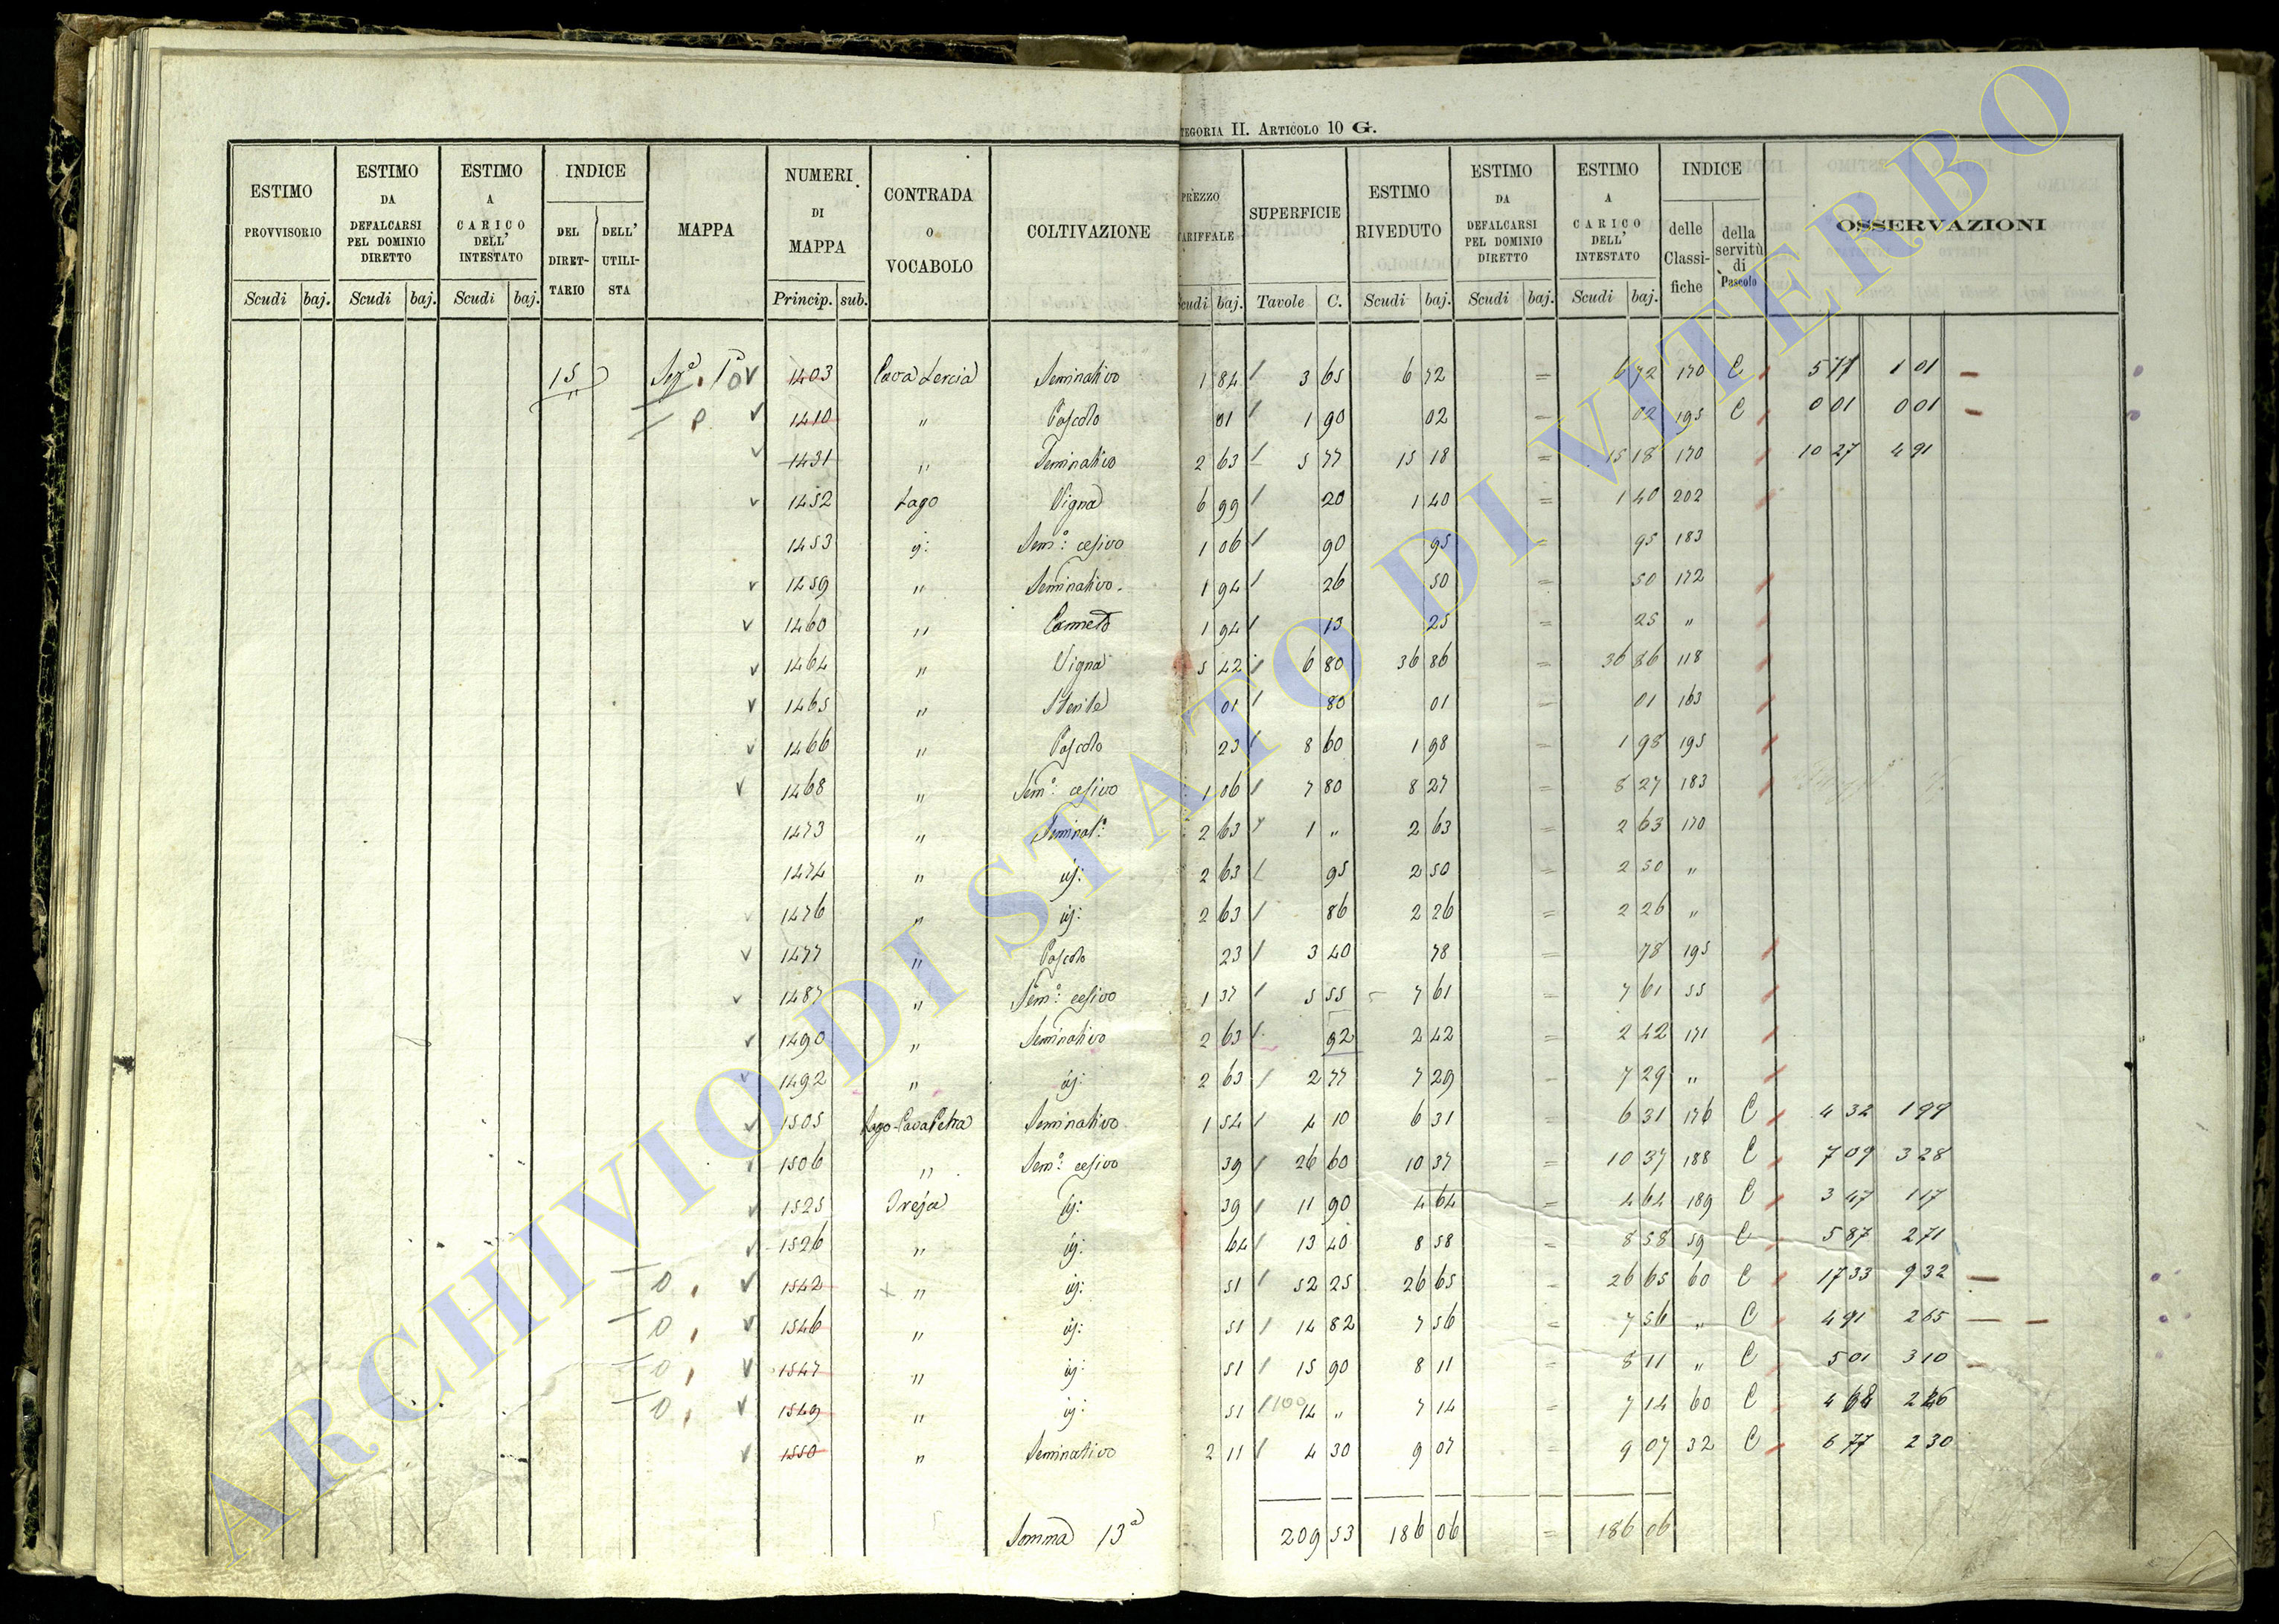 TEGORIA II. ARTICOLO 10 G.
ESTIMO PROVVISORIO Scudi baj. | ESTIMO DA DEFALCARSI PEL DOMINIO DIRETTO Scudi baj. | ESTIMO A CARICO DELL' INTESTATO Scudi baj. | INDICE DEL DIRETTARIO DELL' UTILISTA | MAPPA | NUMERI DI MAPPA Princip. sub. | CONTRADA O VOCABOLO | COLTIVAZIONE | PREZZO TARIFFALE Scudi baj. | SUPERFICIE Tavole C. | ESTIMO RIVEDUTO Scudi baj. | ESTIMO DA DEFALCARSI PEL DOMINIO DIRETTO Scudi baj. | ESTIMO A CARICO DELL' INTESTATO Scudi baj. | INDICE delle Classifiche della servitù di Pascolo | OSSERVAZIONI
15 Sez.ª 1ª 1403 Cava Lercia Seminativo 1 84 3 65 6 72 = 6 72 170 C 5 71 1 01
1410 " Pascolo 01 1 90 02 = 02 195 C 0 01 0 01
1431 " Seminativo 2 63 5 77 15 18 = 15 18 170 10 27 4 91
1452 Lago Vigna 6 99 20 1 40 = 1 40 202
1453 id: Sem.º cesivo 1 06 90 95 = 95 183
1459 " Seminativo 1 94 26 50 = 50 172
1460 " Canneto 1 94 13 25 = 25 "
1464 " Vigna 5 42 6 80 36 86 = 36 86 118
1465 " Sterile 01 80 01 = 01 163
1466 " Pascolo 23 8 60 1 98 = 1 98 195
1468 " Sem.º cesivo 1 06 7 80 8 27 = 8 27 183
1473 " Seminat.º 2 63 1 " 2 63 = 2 63 170
1474 " id: 2 63 95 2 50 = 2 50 "
1476 " id: 2 63 86 2 26 = 2 26 "
1477 " Pascolo 23 3 40 78 = 78 195
1487 " Sem.º cesivo 1 37 5 55 7 61 = 7 61 55
1490 " Seminativo 2 63 92 2 42 = 2 42 171
1492 " id: 2 63 2 77 7 29 = 7 29 "
1505 Lago Cava Petra Seminativo 1 54 4 10 6 31 = 6 31 176 C 4 32 1 99
1506 " Sem.º cesivo 39 26 60 10 37 = 10 37 188 C 7 09 3 28
1525 Treja id: 39 11 90 4 64 = 4 64 189 C 3 47 1 17
1526 " id: 64 13 40 8 58 = 8 58 59 C 5 87 2 71
1542 " id: 51 52 25 26 65 = 26 65 60 C 17 33 9 32
1546 " id: 51 14 82 7 56 = 7 56 " C 4 91 2 65
1547 " id: 51 15 90 8 11 = 8 11 " C 5 01 3 10
1549 " id: 51 14 " 7 14 = 7 14 60 C 4 68 2 46
1550 " Seminativo 2 11 4 30 9 07 = 9 07 32 C 6 77 2 30
Somma 13ª 209 53 186 06 = 186 06
ARCHIVIO DI STATO DI VITERBO